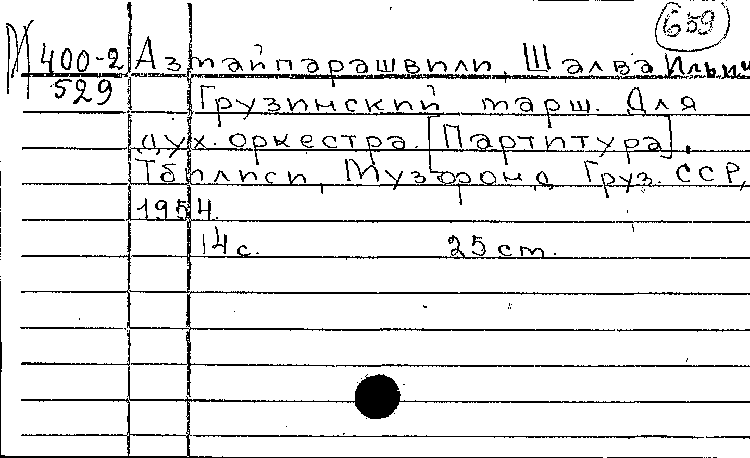 659
М 400-2 Азмайпарашвили, Шалва Ильич
529
Грузинский марш. Для
дух. оркестра. [Партитура].
Тбилиси, Музфонд Груз. ССР,
1954.
14 с. 25 см.